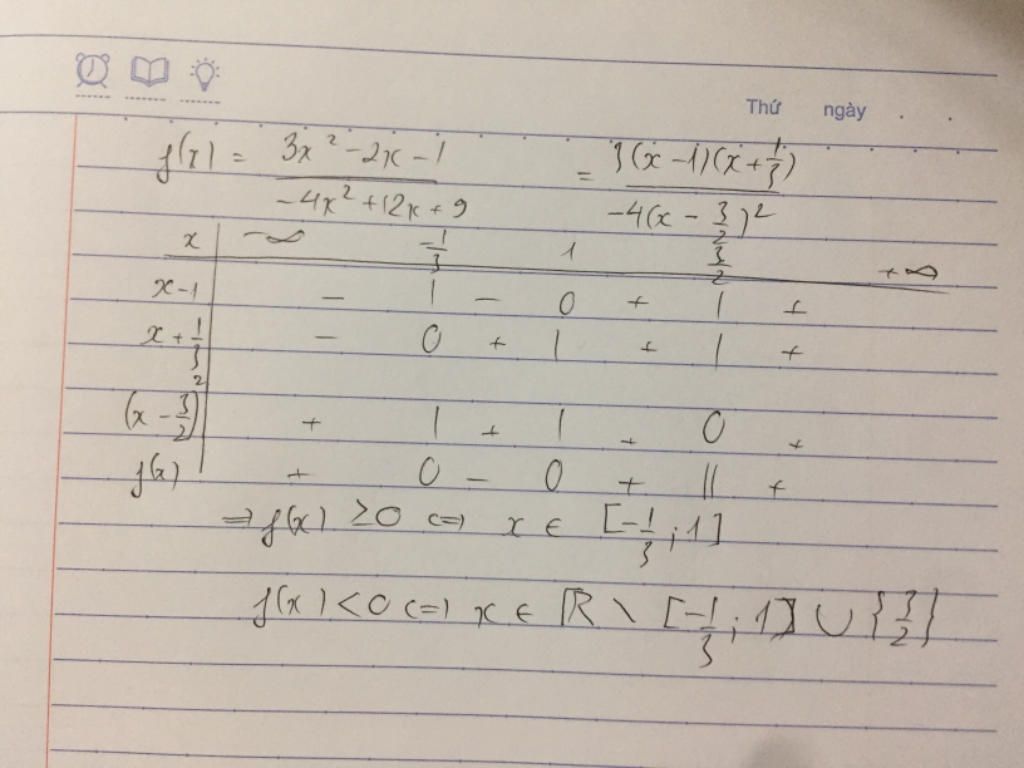 Thứ ngày . .
f(x) = \frac{3x^2 - 2x - 1}{-4x^2 + 12x + 9} = \frac{3(x - 1)(x + \frac{1}{3})}{-4(x - \frac{3}{2})^2}
x -∞ -\frac{1}{3} 1 \frac{3}{2} +∞
x - 1 - | - 0 + | +
x + \frac{1}{3} - 0 + | + | +
(x - \frac{3}{2})^2 + | + | + 0 +
f(x) + 0 - 0 + || +
⇒ f(x) ≥ 0 ⇔ x ∈ [-\frac{1}{3}; 1]
f(x) < 0 ⇔ x ∈ ℝ \ [-\frac{1}{3}; 1] ∪ {\frac{3}{2}}